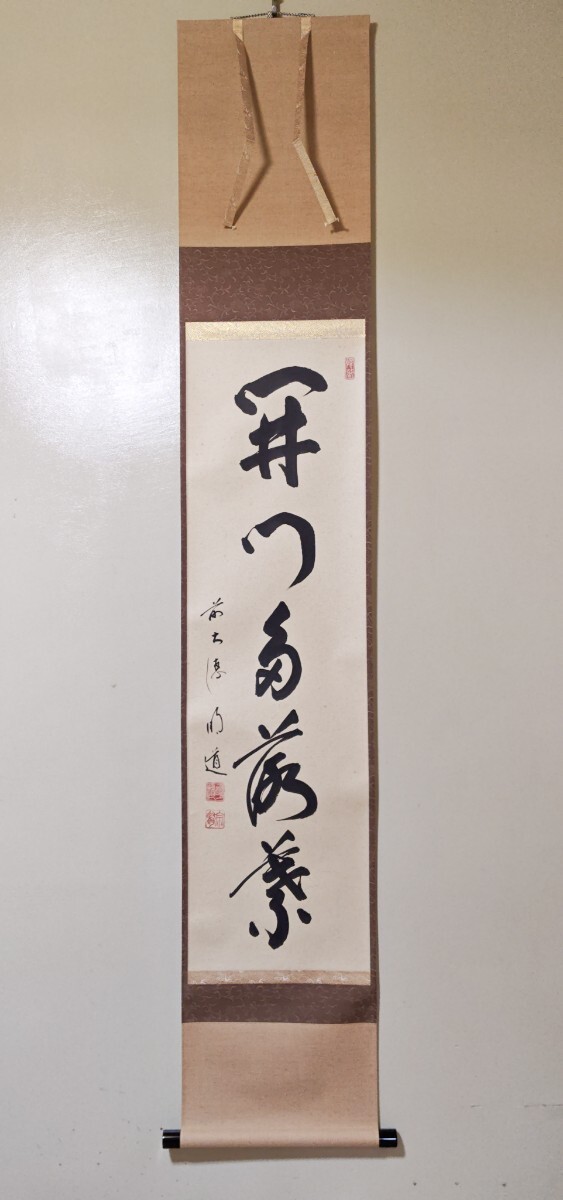 開門多落葉
前大徳明道